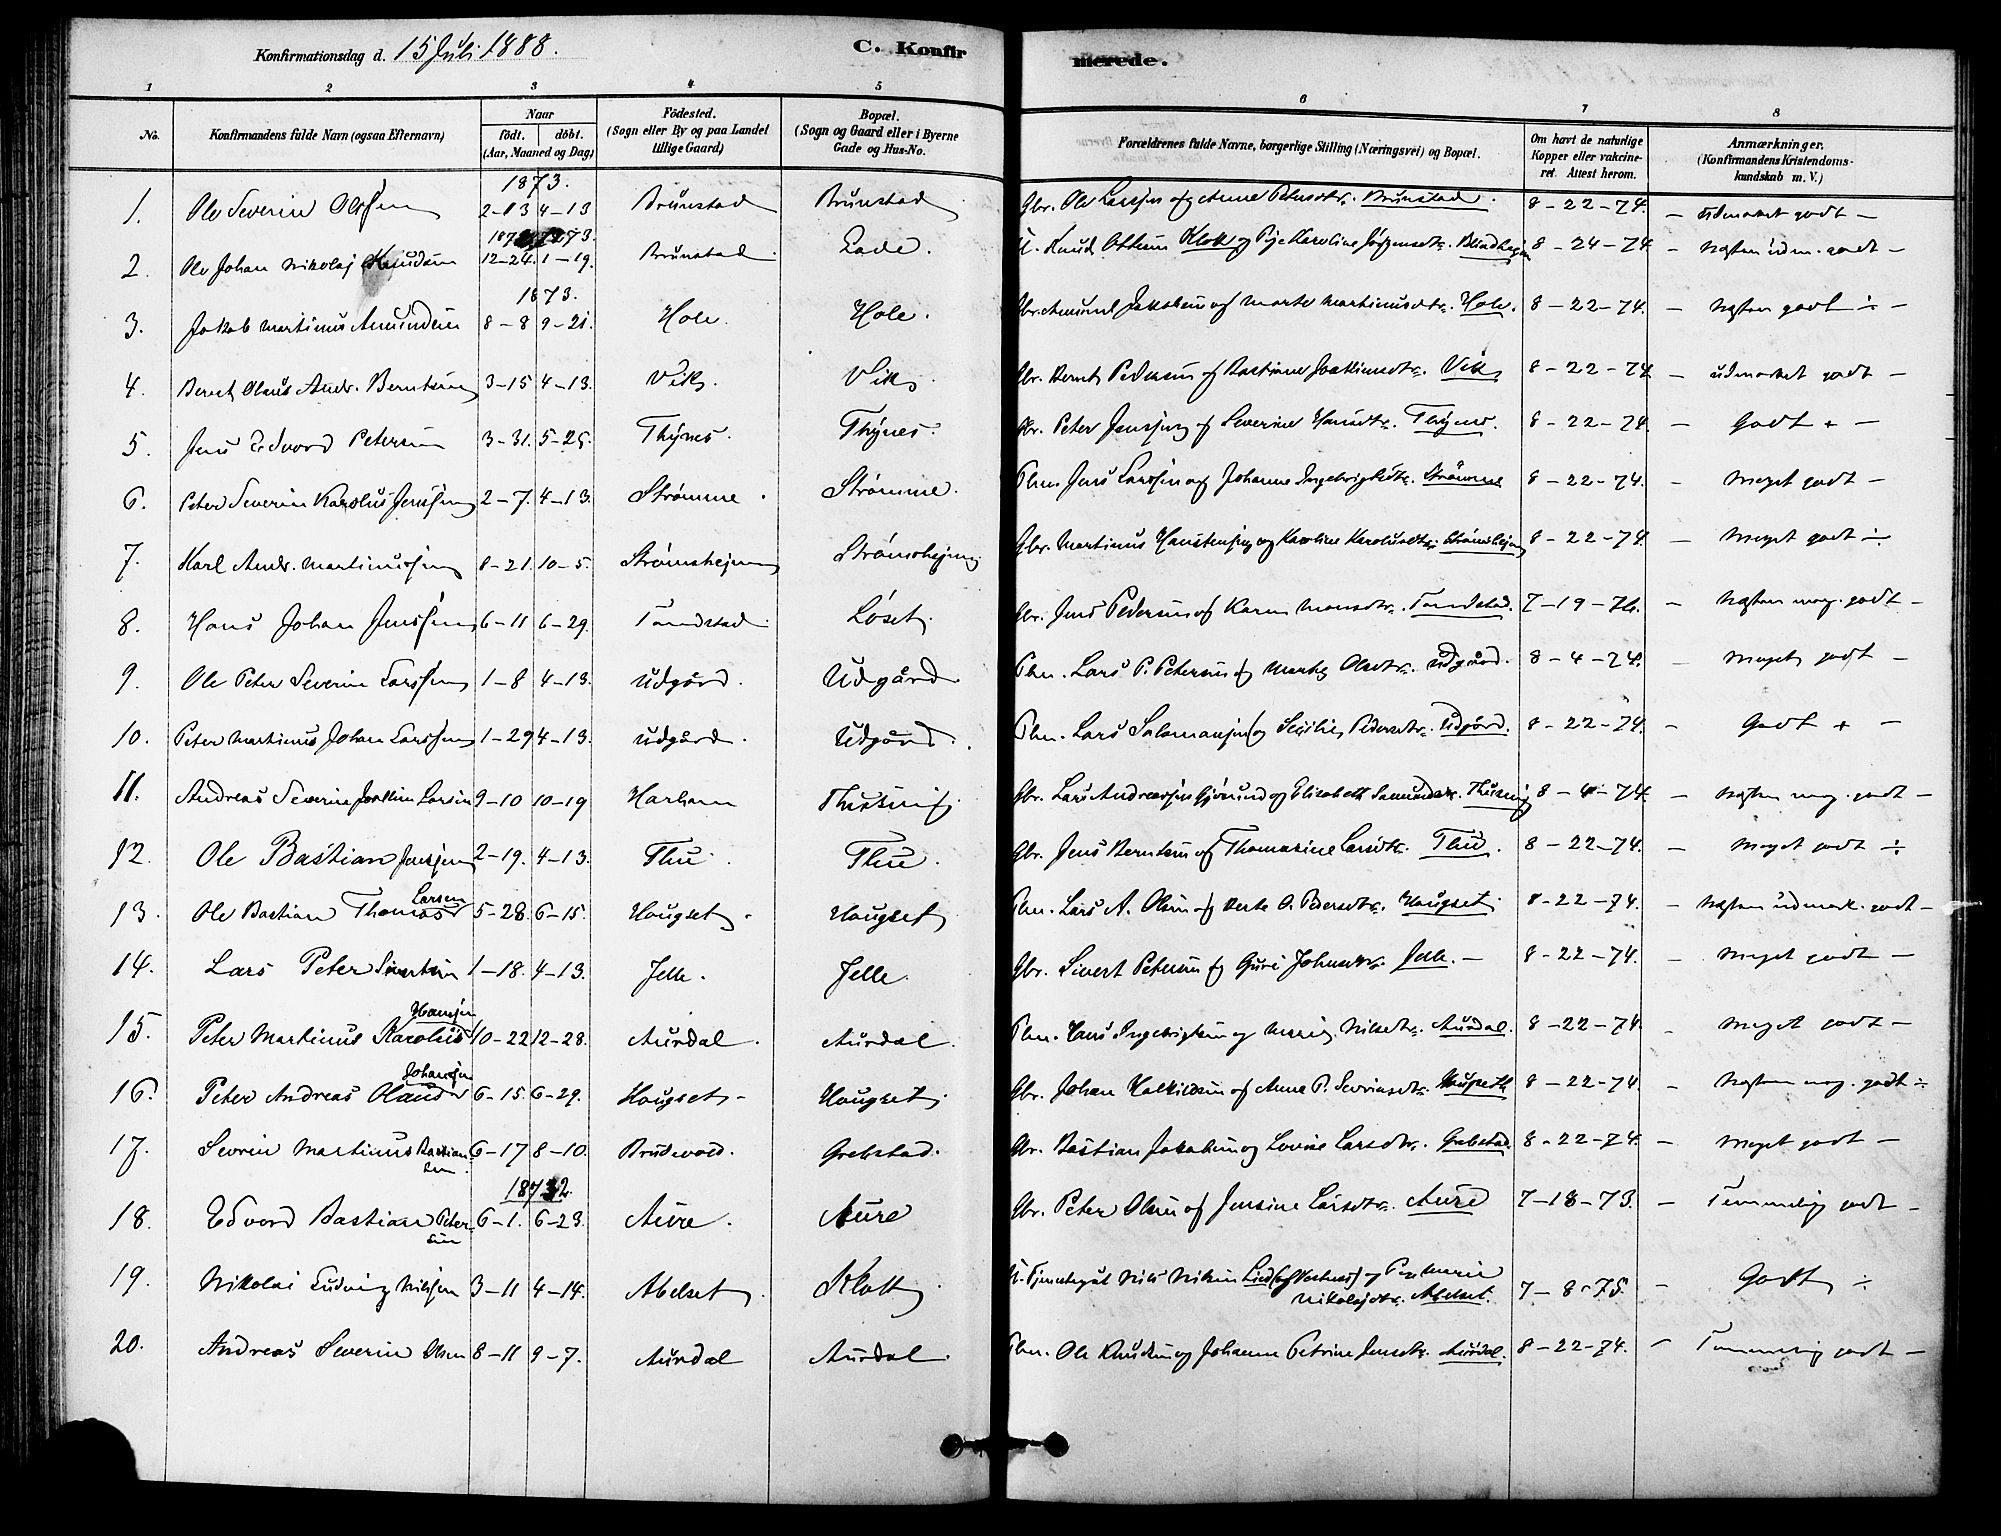 Konfirmationsdag d. 15 Juli 1888.
C. Konfirmerede.
1 2 3 4 5 6 7 8
No. Konfirmandens fulde Navn (ogsaa Efternavn) Naar födt. döbt. (Aar, Maaned og Dag) Födested. (Sogn eller By og paa Landet tillige Gaard) Bopæl. (Sogn og Gaard eller i Byerne Gade og Hus-No. Forældrenes fulde Navne, borgerlige Stilling (Næringsvei) og Bopæl. Om havt de naturlige Kopper eller vakcineret. Attest herom. Anmærkninger. (Konfirmandens Kristendomskundskab m. V.)
1873.
1. Ole Severin Olsen 2-13 4-13 Brunstad Brunstad Gbr. Ole Larssen og Anne Petersdtr. Brunstad. 8-22-74. - udmærket godt -
1872 1873.
2. Ole Johan Nikolaj Knudsen 12-24. 1-19. Brunstad Lade. Knud Klok og Karoline 8-24-74. - Næsten udm. godt -
1873.
3. Jakob Martinus Amundsen 8-8 9-21. Hole. Hole. Gbr. Amund Jakobsen og Marte Martinusdtr. Hole. 8-22-74. - Næsten godt ÷ -
4. Bernt Olaus Andr. Berntsen 3-15 4-13. Vik. Vik. Gbr. Bernt Pedersen og Bastiane Vik 8-22-74 - udmærket godt -
5. Jens Edvard Petersen 3-31. 5-25. Thynes. Thynes. Gbr. Peter Jenssen og Severine Hansdtr. Thynes. 8-22-74. - Godt + -
6. Peter Severin Karolus Jenssen 2-7. 4-13. Strømme. Strømme. Plm. Jens Larssen og Johanne Ingebrigtsdtr. Strømme 8-22-74. - Meget godt -
7. Karl Andr. Martinussen 8-21. 10-5. Strømshejm Strømshejm Gbr. Martinus og Karoline Karolusdtr. Strømshejm 8-22-74. - Meget godt ÷
8. Hans Johan Jenssen 6-11 6-29. Tandstad Løset. Gbr. Jens Pedersen og Karen Monsdtr. Tandstad. 7-19-76. - Næsten meg. godt -
9. Ole Peter Severin Larssen 1-8 4-13. Udgård. Udgård Plm. Lars P. Petersen og Marte Olsdtr. Udgård. 8-4-74. - Meget godt -
10. Peter Martinus Johan Larssen 1-29 4-13. Udgård. Udgård. Plm. Lars Salamonsen og Pedersdtr. Udgård. 8-22-74. - Godt + -
11. Andreas Severin Joakim Larsen 9-10 10-19 Harham Gbr. Lars Andreassen og Elisabeth 8-4-74. - Næsten meg. godt -
12. Ole Bastian Jenssen 2-19. 4-13. Thu. Thu. Gbr. Jens Berntsen og Thomasine Larsdtr. Thu. 8-22-74. - Meget godt ÷
13. Ole Bastian Thomas Larsen 5-28. 6-15. Haugset. Haugset Plm. Lars A. Olsen og O. Pedersdtr. Haugset. 8-22-74. - Næsten udmærk. godt -
14. Lars Peter Sivertsen 1-18. 4-13. Jelle. Jelle. Gbr. Sivert Petersen og Guri Johnsdtr. Jelle. - 8-22-74. - Meget godt -
15. Peter Martinus Karolus Hanssen 10-22 12-28. Aurdal. Aurdal. Plm. Hans Ingebrigtsen og Nilsdtr. Aurdal. 8-22-74. - Meget godt -
16. Peter Andreas Olaus Johanssen 6-15. 6-29. Haugset - Haugset. Gbr. Johan og Anne P. Severinsdtr. 8-22-74. - Næsten meg. godt ÷
17. Severin Martinus Bastiansen 6-17 8-10. Brudevold. Grebstad. Gbr. Bastian Jakobsen og Lovise Larsdtr. Grebstad. 8-22-74. - Meget godt -
1872.
18. Edvard Bastian Petersen 6-1. 6-23. Aure. Aure Gbr. Peter Olsen og Jensine Larsdtr. Aure 7-18-73. - Temmelig godt -
19. Nikolai Ludvig Nilssen 3-11 4-14. Abelset. Klok Nils Nilsen Marie
Nikolajdtr. Abelset. 7-8-75. - Godt ÷
20. Andreas Severin Olsen 8-11 9-7. Aurdal Aurdal. Plm. Ole Knudsen og Johanne Petrine Jensdtr. Aurdal. 8-22-74. - Temmelig godt -